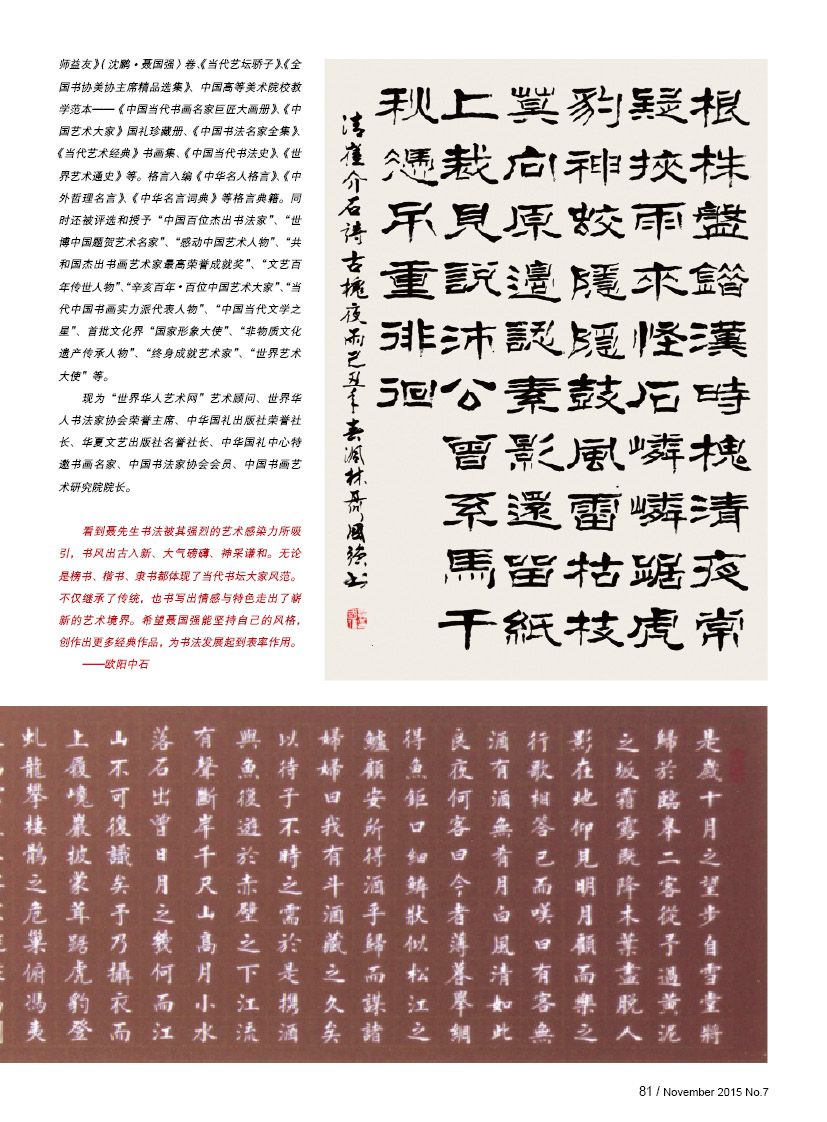 师益友》（沈鹏·聂国强）卷、《当代艺坛骄子》、《全
国书协美协主席精品选集》、中国高等美术院校教
学范本——《中国当代书画名家巨匠大画册》、《中
国艺术大家》国礼珍藏册、《中国书法名家全集》、
《当代艺术经典》书画集、《中国当代书法史》、《世
界艺术通史》等。格言入编《中华名人格言》、《中
外哲理名言》、《中华名言词典》等格言典籍。同
时还被评选和授予“中国百位杰出书法家”、“世
博中国题贺艺术名家”、“感动中国艺术人物”、“共
和国杰出书画艺术家最高荣誉成就奖”、“文艺百
年传世人物”、“辛亥百年·百位中国艺术大家”、“当
代中国书画实力派代表人物”、“中国当代文学之
星”、首批文化界“国家形象大使”、“非物质文化
遗产传承人物”、“终身成就艺术家”、“世界艺术
大使”等。
现为“世界华人艺术网”艺术顾问、世界华
人书法家协会荣誉主席、中华国礼出版社荣誉社
长、华夏文艺出版社名誉社长、中华国礼中心特
邀书画名家、中国书法家协会会员、中国书画艺
术研究院院长。
看到聂先生书法被其强烈的艺术感染力所吸
引，书风出古入新、大气磅礴、神采谦和。无论
是榜书、楷书、隶书都体现了当代书坛大家风范。
不仅继承了传统，也书写出情感与特色走出了崭
新的艺术境界。希望聂国强能坚持自己的风格，
创作出更多经典作品，为书法发展起到表率作用。
——欧阳中石
根株盤錯漢時槐清夜常
疑挾雨來怪石嶙嶙踞虎
豹神蛟隱隱鼓風雷枯枝
莫向原邊認素影還留紙
上裁見說沛公曾系馬千
秋憑吊重徘徊
清崔介石詩古槐夜雨己丑年春润林聂國强书
是歲十月之望步自雪堂將
歸於臨皋二客從予過黃泥
之坂霜露既降木葉盡脫人
影在地仰見明月顧而樂之
行歌相答已而嘆曰有客無
酒有酒無肴月白風清如此
良夜何客曰今者薄暮舉網
得魚鉅口細鱗狀似松江之
鱸顧安所得酒乎歸而謀諸
婦婦曰我有斗酒藏之久矣
以待子不時之需於是攜酒
與魚復遊於赤壁之下江流
有聲斷岸千尺山高月小水
落石出曾日月之幾何而江
山不可復識矣予乃攝衣而
上履巉巖披蒙茸踞虎豹登
虬龍攀棲鶻之危巢俯馮夷
81 / November 2015 No.7